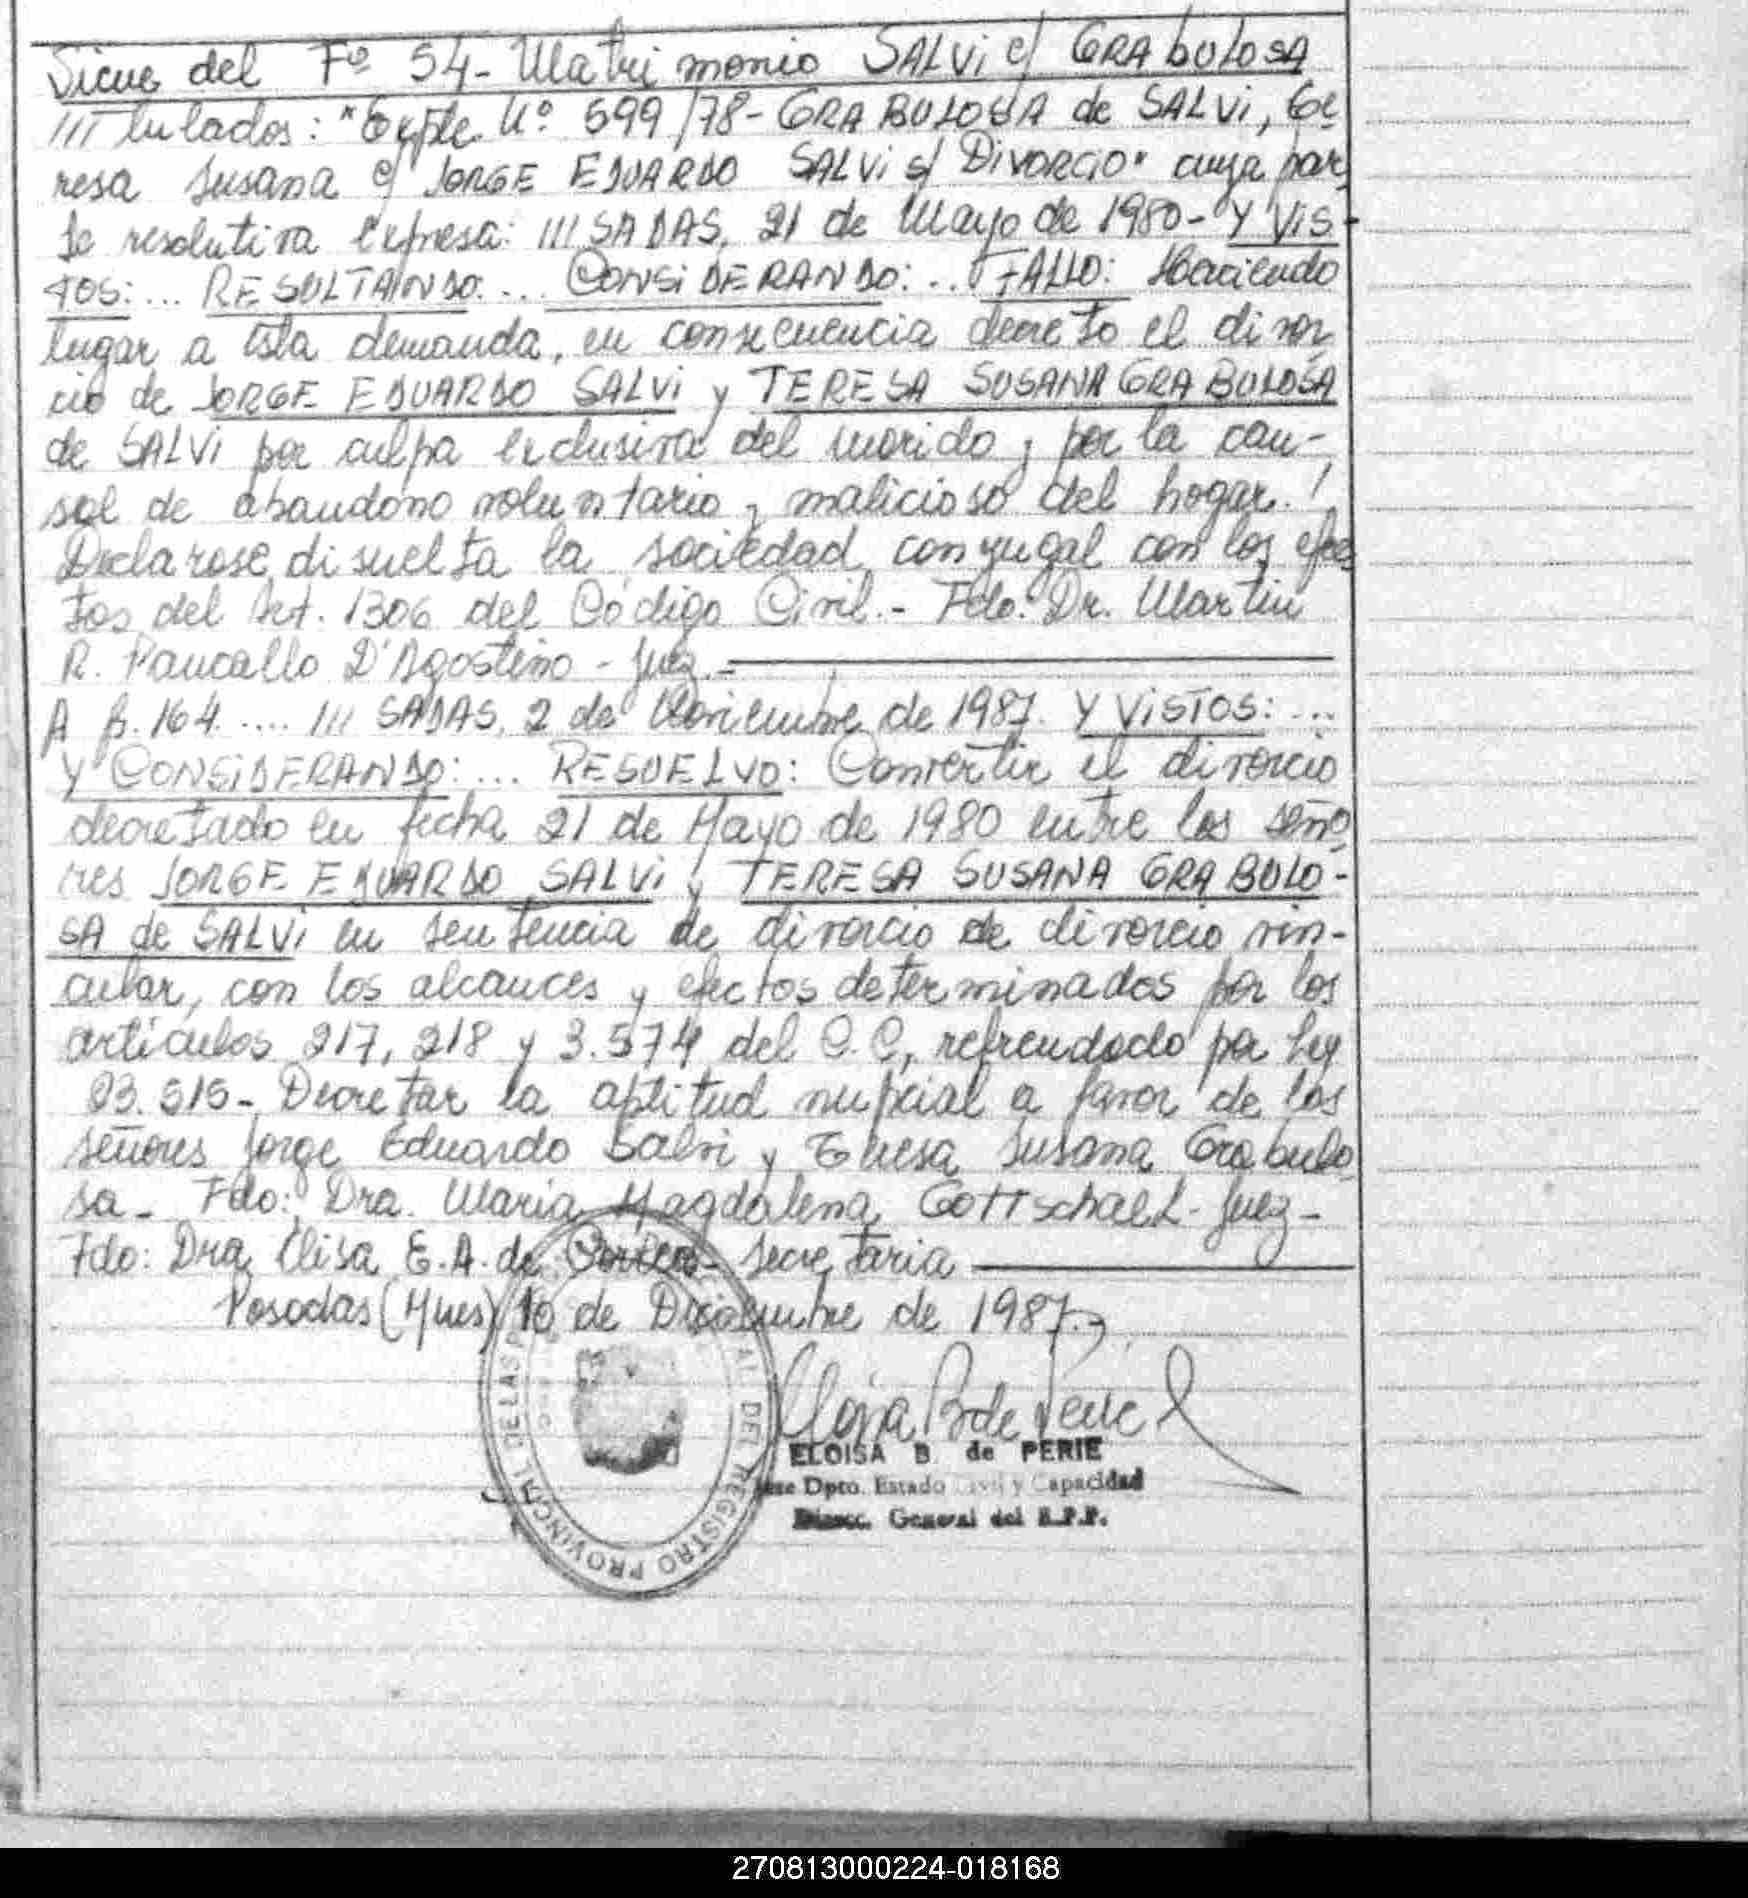 Sigue del Fº 54- Matrimonio SALVi c/ GRABULOSA
///tulados: "Expte. Nº 599/78- GRABULOSA de SALVi, Te
resa Susana c/ JORGE EDUARDO SALVi s/ DiVORCiO" cuya par
te resolutiva expresa: ///SADAS, 21 de Mayo de 1980- Y ViS-
TOS:... RESULTANDO:... CONSiDERANDO:... FALLO: Haciendo
lugar a esta demanda, en consecuencia decreto el divor
cio de JORGE EDUARDO SALVi y TERESA SUSANA GRABULOSA
de SALVi por culpa exclusiva del marido y por la cau-
sal de abandono voluntario y malicioso del hogar.
Declarase disuelta la sociedad conyugal con los efec
tos del Art. 1306 del Código Civil.- Fdo: Dr. Martin
R. D'Agostino - Juez.-
A fs. 164.... ///SADAS, 2 de Noviembre de 1987. Y ViSTOS:...
Y CONSiDERANDO:... RESUELVO: Convertir el divorcio
decretado en fecha 21 de Mayo de 1980 entre los seño
res JORGE EDUARDO SALVi y TERESA SUSANA GRABULO-
SA de SALVi en sentencia de divorcio de divorcio vin-
cular, con los alcances y efectos determinados por los
artículos 217, 218 y 3.574 del C.C, refrendado por Ley
23.515- Decretar la aptitud nupcial a favor de los
señores Jorge Eduardo Salvi y Teresa Susana Grabulo
sa- Fdo: Dra. Maria Magdalena Gottschalk- Juez-
Fdo: Dra Elisa E.A. de Secretaria
Posadas (Mnes) 10 de Diciembre de 1987.-
Eloisa B de Perie
ELOISA B. de PERIE
Jefe Dpto. Estado Civil y Capacidad
Direcc. General del R.P.P.
DEL REGISTRO PROVINCIAL DE LAS
270813000224-018168